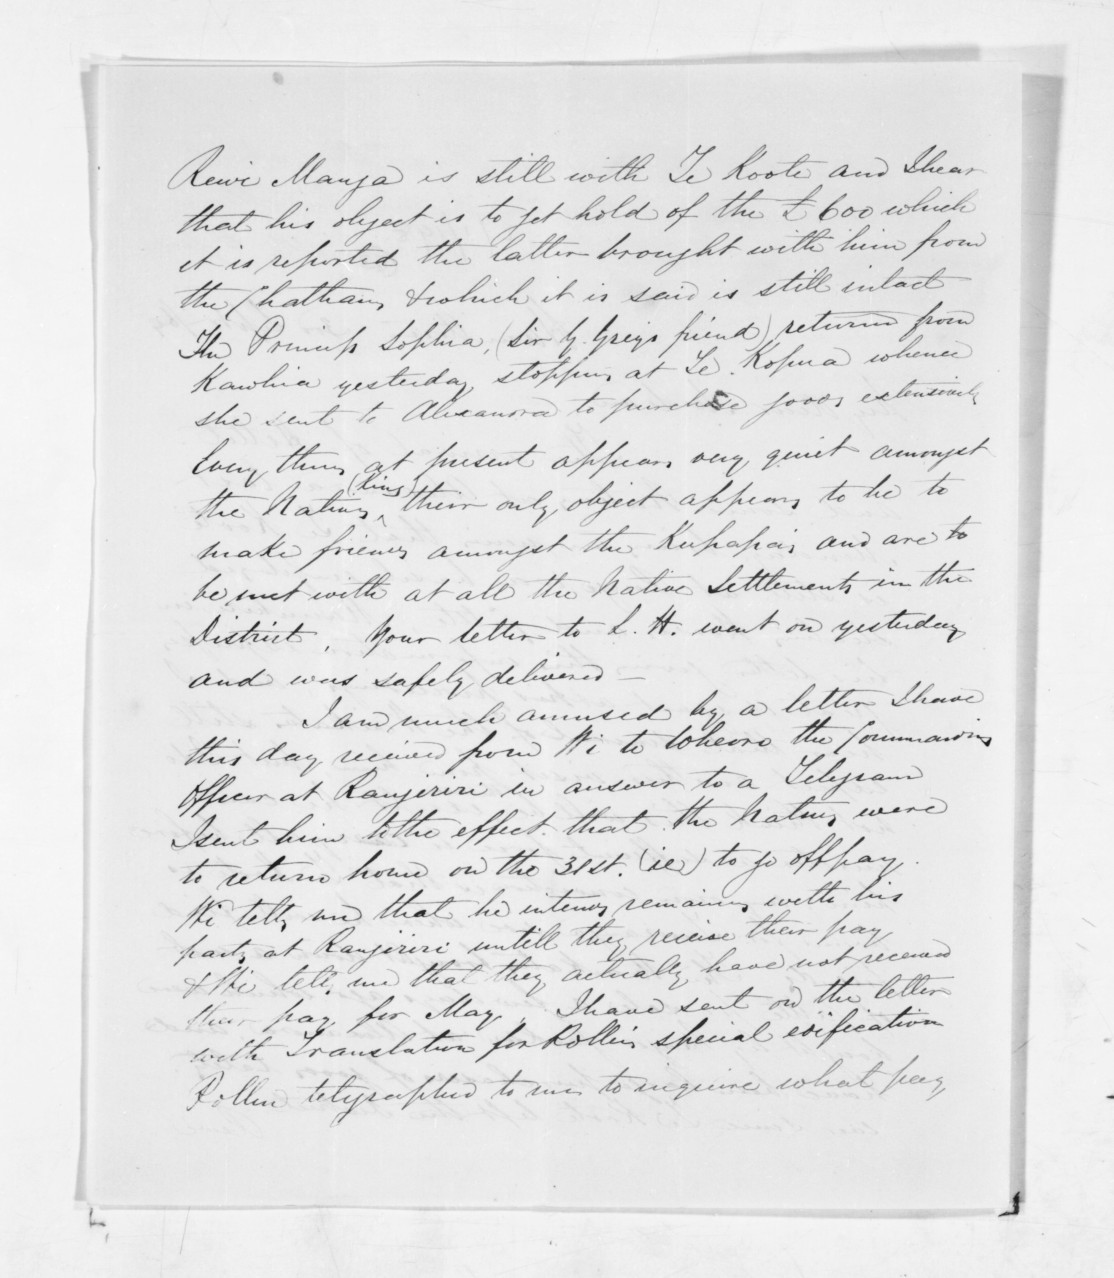 Rewi Manga is still with Te Koote and I hear
that his object is to get hold of the £600 which
it is reported the latter brought with him from
the Chathams & which it is said is still intact
The Princess Sophia, (Sir G. Greys friend) returned from
Kawhia yesterday, stopping at Te Kopua whence
she sent to Alexandra to purchase goods extensively
Every thing at present appears very quiet amongst
(King)
the Natives, their only object appears to be to
make friends amongst the Kupapas and are to
be met with at all the Native Settlements in the
District, Your letter to L. H. went on yesterday
and was safely delivered —
I am much amused by a letter I have
this day received from Wi te Wheoro the Commanding
Officer at Rangiriri in answer to a Telegram
I sent him to the effect that the Natives were
to return home on the 31st. (ie) to go off pay.
Wi tells me that he intends remaining with his
party at Rangiriri untill they receive their pay
& Wi tells me that they actually have not received
their pay for May. I have sent on the letter
with Translation for Rollens special edification
Rollen telegraphed to me to inquire what pay,